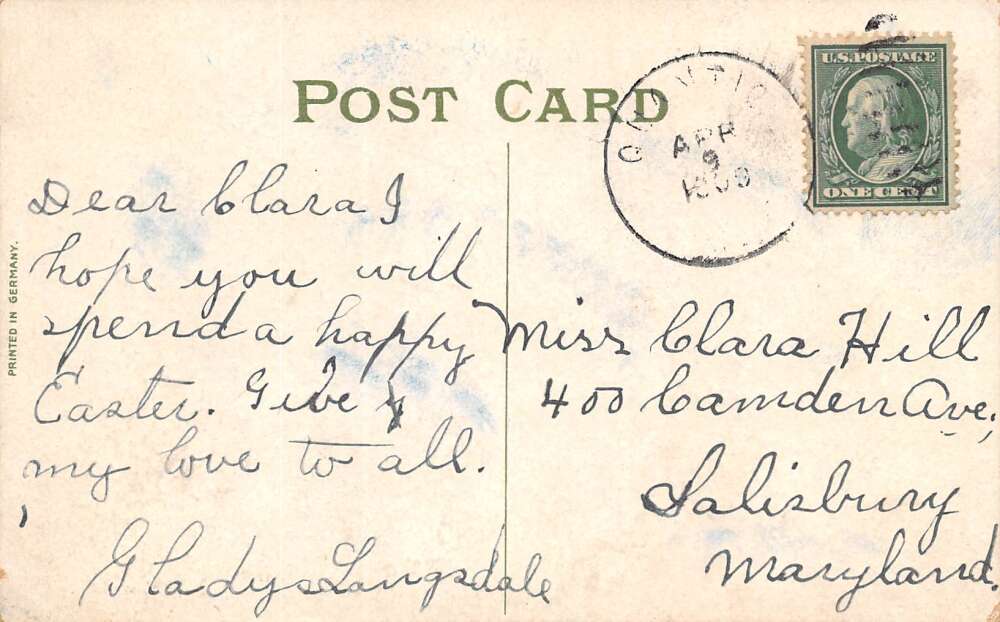 POST CARD
U.S. POSTAGE
ONE CENT
APR
9
PRINTED IN GERMANY.
Dear Clara I
hope you will
spend a happy
Easter. Give
my love to all.
Gladys Langsdale
Miss Clara Hill
400 Camden Ave.
Salisbury
Maryland.